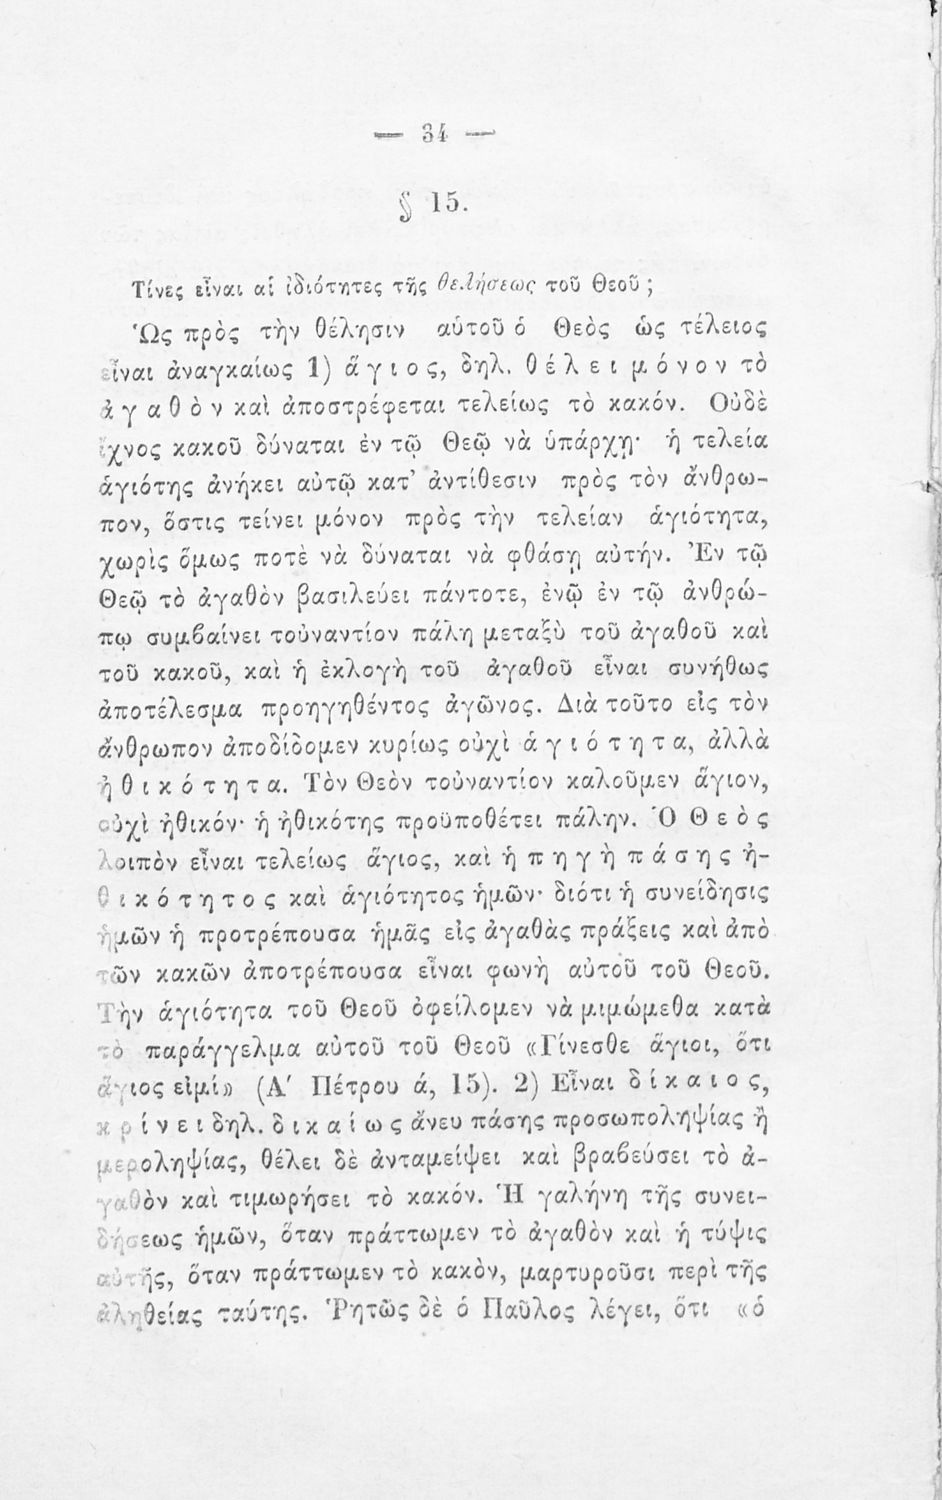 — 34 —
§ 15.
Τίνες εἶναι αἱ ἰδιότητες τῆς θελήσεως τοῦ Θεοῦ ;
Ὡς πρὸς τὴν θέλησιν αὑτοῦ ὁ Θεὸς ὡς τέλειος
εἶναι ἀναγκαίως 1) ἅ γ ι ο ς, δηλ. θ έ λ ε ι μ ό ν ο ν τὸ
ἀ γ α θ ὸ ν καὶ ἀποστρέφεται τελείως τὸ κακόν. Οὐδὲ
ἴχνος κακοῦ δύναται ἐν τῷ Θεῷ νὰ ὑπάρχῃ· ἡ τελεία
ἁγιότης ἀνήκει αὐτῷ κατ’ ἀντίθεσιν πρὸς τὸν ἄνθρω-
πον, ὅστις τείνει μόνον πρὸς τὴν τελείαν ἁγιότητα,
χωρὶς ὅμως ποτὲ νὰ δύναται νὰ φθάσῃ αὐτήν. Ἐν τῷ
Θεῷ τὸ ἀγαθὸν βασιλεύει πάντοτε, ἐνῷ ἐν τῷ ἀνθρώ-
πῳ συμβαίνει τοὐναντίον πάλη μεταξὺ τοῦ ἀγαθοῦ καὶ
τοῦ κακοῦ, καὶ ἡ ἐκλογὴ τοῦ ἀγαθοῦ εἶναι συνήθως
ἀποτέλεσμα προηγηθέντος ἀγῶνος. Διὰ τοῦτο εἰς τὸν
ἄνθρωπον ἀποδίδομεν κυρίως οὐχὶ ἁ γ ι ό τ η τ α, ἀλλὰ
ἠ θ ι κ ό τ η τ α. Τὸν Θεὸν τοὐναντίον καλοῦμεν ἅγιον,
οὐχὶ ἠθικόν· ἡ ἠθικότης προϋποθέτει πάλην. Ὁ Θ ε ὸ ς
λοιπὸν εἶναι τελείως ἅγιος, καὶ ἡ π η γ ὴ π ά σ η ς ἠ-
θ ι κ ό τ η τ ο ς καὶ ἁγιότητος ἡμῶν· διότι ἡ συνείδησις
ἡμῶν ἡ προτρέπουσα ἡμᾶς εἰς ἀγαθὰς πράξεις καὶ ἀπὸ
τῶν κακῶν ἀποτρέπουσα εἶναι φωνὴ αὐτοῦ τοῦ Θεοῦ.
Τὴν ἁγιότητα τοῦ Θεοῦ ὀφείλομεν νὰ μιμώμεθα κατὰ
τὸ παράγγελμα αὐτοῦ τοῦ Θεοῦ «Γίνεσθε ἅγιοι, ὅτι
ἅγιος εἰμί» (Α΄ Πέτρου ά, 15). 2) Εἶναι δ ί κ α ι ο ς,
κ ρ ί ν ε ι δηλ. δ ι κ α ί ω ς ἄνευ πάσης προσωποληψίας ἢ
μεροληψίας, θέλει δὲ ἀνταμείψει καὶ βραβεύσει τὸ ἀ-
γαθὸν καὶ τιμωρήσει τὸ κακόν. Ἡ γαλήνη τῆς συνει-
δήσεως ἡμῶν, ὅταν πράττωμεν τὸ ἀγαθὸν καὶ ἡ τύψις
αὐτῆς, ὅταν πράττωμεν τὸ κακὸν, μαρτυροῦσι περὶ τῆς
ἀληθείας ταύτης. Ῥητῶς δὲ ὁ Παῦλος λέγει, ὅτι «ὁ